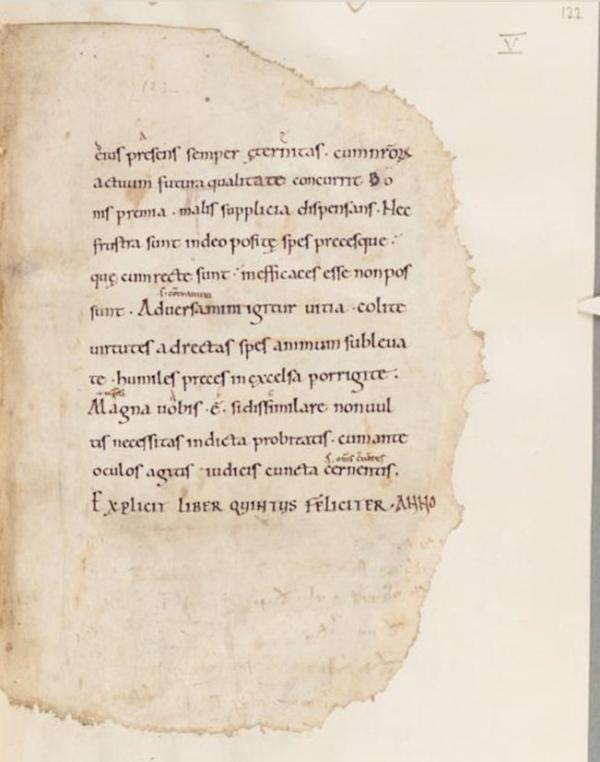 122
V
eius presens semper ęternitas · cum nrorum
actuum futura qualitate concurrit Bo
nis premia · malis supplicia dispensans · Nec
frustra sunt in deo positę spes precesque ·
quę cum recte sunt · inefficaces esse non pos
sunt · Adversamini igitur uitia · colite
uirtutes ad rectas spes animum subleua
te · humiles preces in excelsa porrigite ·
Magna uobis · ē · si dissimilare non uul
tis necessitas indicta probitatis · cum ante
oculos agitis iudicis cuncta cernentis ·
Explicit LIBER QUINTUS FELICITER · ANNO